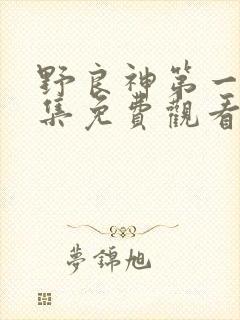 野良神第一
集免費觀看
夢錦旭